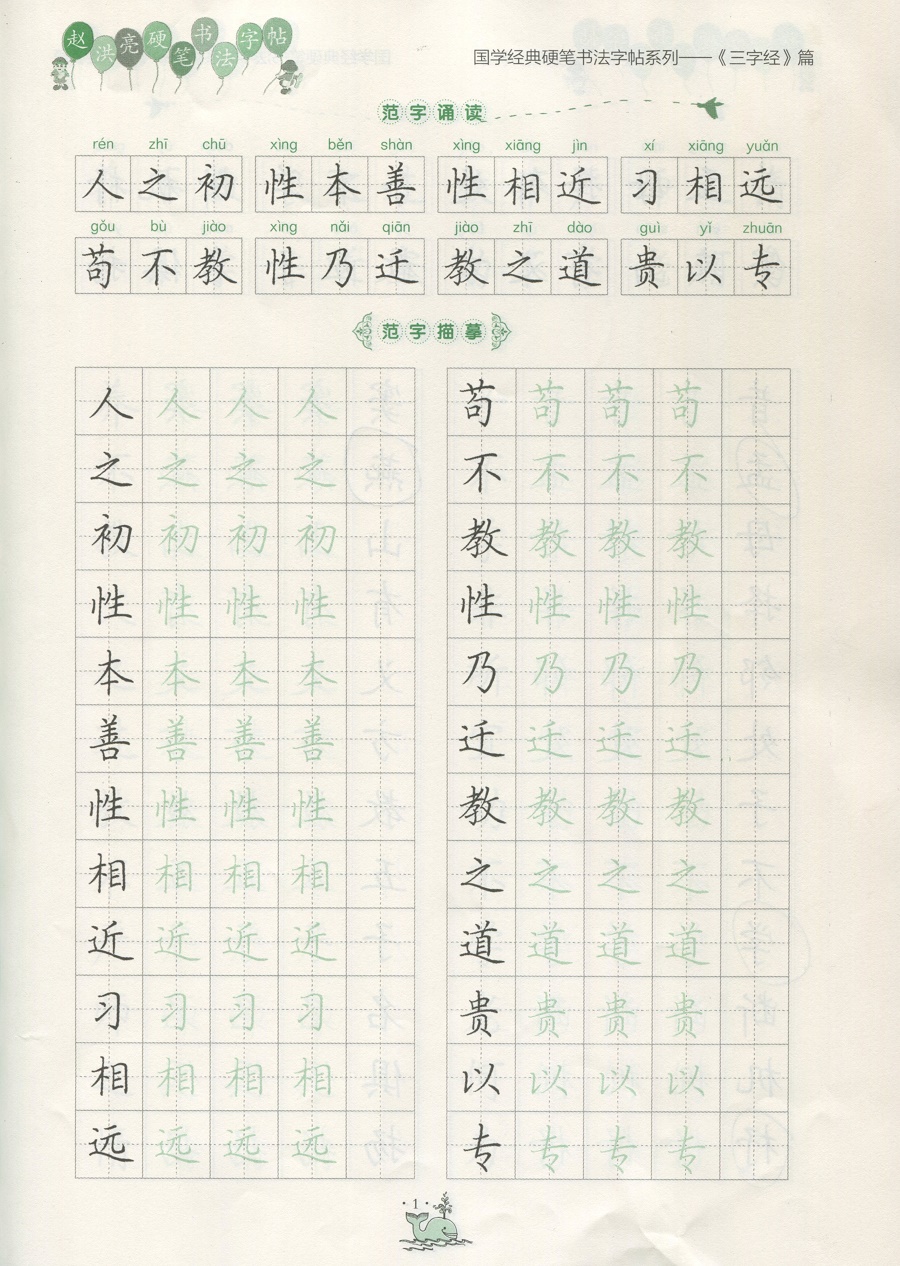 赵洪亮硬笔书法字帖
国学经典硬笔书法字帖系列——《三字经》篇
范字诵读
rén zhī chū xìng běn shàn xìng xiāng jìn xí xiāng yuǎn
人之初 性本善 性相近 习相远
gǒu bù jiào xìng nǎi qiān jiào zhī dào guì yǐ zhuān
苟不教 性乃迁 教之道 贵以专
范字描摹
人 人 人 人 苟 苟 苟 苟
之 之 之 之 不 不 不 不
初 初 初 初 教 教 教 教
性 性 性 性 性 性 性 性
本 本 本 本 乃 乃 乃 乃
善 善 善 善 迁 迁 迁 迁
性 性 性 性 教 教 教 教
相 相 相 相 之 之 之 之
近 近 近 近 道 道 道 道
习 习 习 习 贵 贵 贵 贵
相 相 相 相 以 以 以 以
远 远 远 远 专 专 专 专
·1·